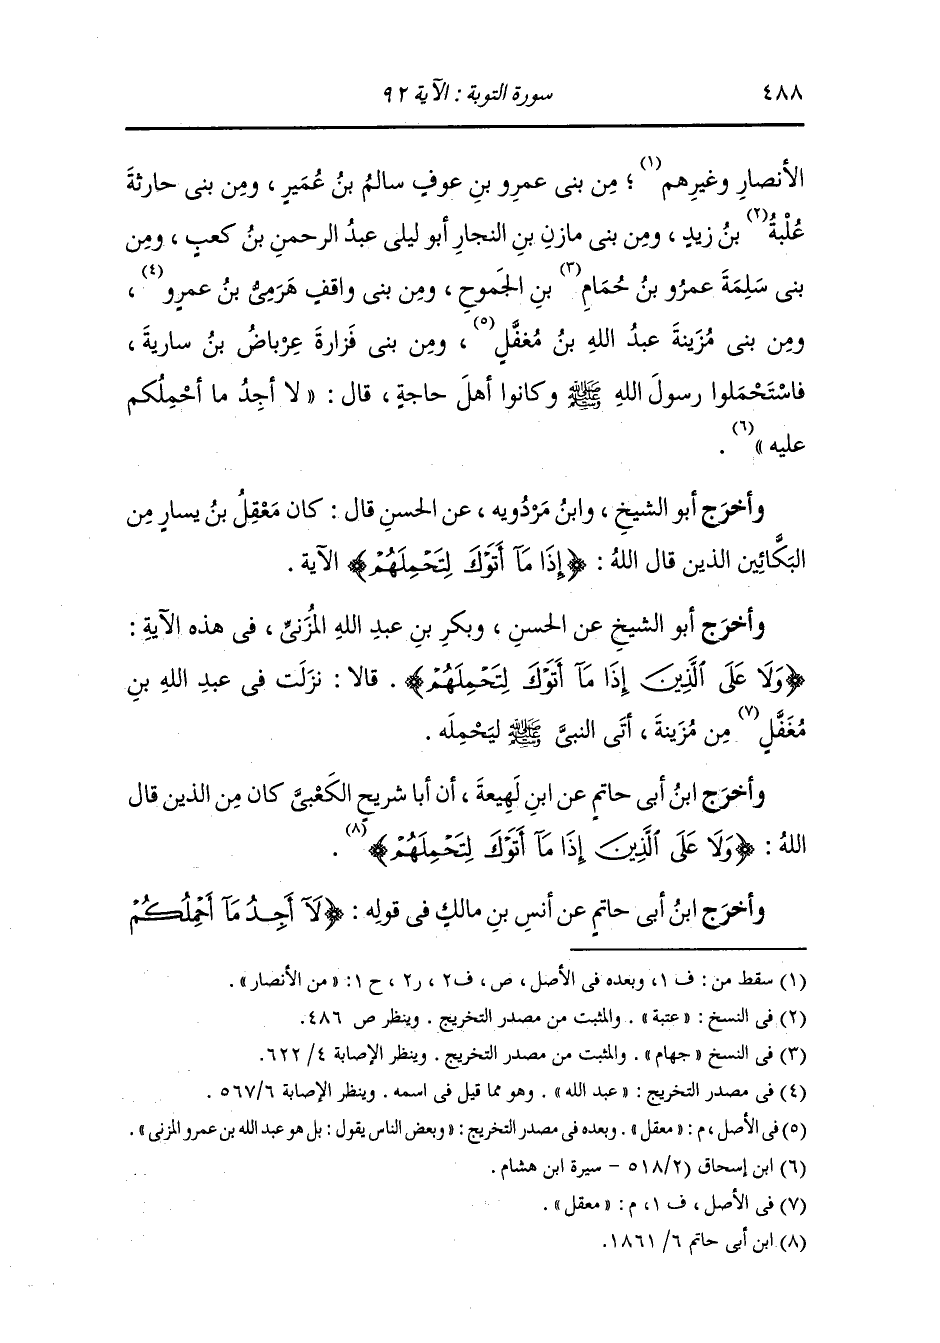 ٤٨٨ سورة التوبة : الآية ٩٢
الأنصارِ وغيرِهم(١) ؛ مِن بنى عمرِو بنِ عوفٍ سالمُ بنُ عُمَيرٍ ، ومِن بنى حارثةَ
عُلْبةُ(٢) بنُ زيدٍ ، ومِن بنى مازنِ بنِ النجارِ أبو ليلى عبدُ الرحمنِ بنُ كعبٍ ، ومِن
بنى سَلِمَةَ عمرُو بنُ حُمَامِ(٣) بنِ الجَموحِ ، ومِن بنى واقفٍ هَرَمِىُّ بنُ عمرٍو(٤) ،
ومِن بنى مُزَينةَ عبدُ اللهِ بنُ مُغفَّلٍ(٥) ، ومِن بنى فَزارةَ عِرْباضُ بنُ ساريةَ ،
فاسْتَحْمَلوا رسولَ اللهِ ﷺ وكانوا أهلَ حاجةٍ ، قال : « لا أجِدُ ما أحْمِلُكم
عليه »(٦) .
وأخرَج أبو الشيخِ ، وابنُ مَرْدُويه ، عن الحسنِ قال : كان مَعْقِلُ بنُ يسارٍ مِن
البَكَّائِين الذين قال اللهُ : ﴿إِذَا مَآ أَتَوۡكَ لِتَحۡمِلَهُمۡ﴾ الآية .
وأخرَج أبو الشيخِ عن الحسنِ ، وبكرِ بنِ عبدِ اللهِ المُزَنىِّ ، فى هذه الآيةِ :
﴿وَلَا عَلَى ٱلَّذِينَ إِذَا مَآ أَتَوۡكَ لِتَحۡمِلَهُمۡ﴾ . قالا : نزَلَت فى عبدِ اللهِ بنِ
مُغَفَّلٍ(٧) مِن مُزَينةَ ، أتَى النبىَّ ﷺ ليَحْمِلَه .
وأخرَج ابنُ أبى حاتمٍ عن ابنِ لَهِيعةَ ، أن أبا شريحٍ الكَعْبىَّ كان مِن الذين قال
اللهُ : ﴿وَلَا عَلَى ٱلَّذِينَ إِذَا مَآ أَتَوۡكَ لِتَحۡمِلَهُمۡ﴾(٨) .
وأخرَج ابنُ أبى حاتمٍ عن أنسِ بنِ مالكٍ فى قولِه : ﴿لَآ أَجِدُ مَآ أَحۡمِلُكُمۡ
(١) سقط من : ف ١، وبعده فى الأصل ، ص ، ف٢ ، ر٢ ، ح ١: « من الأنصار» .
(٢) فى النسخ : « عتبة » . والمثبت من مصدر التخريج . وينظر ص ٤٨٦.
(٣) فى النسخ « جهام » . والمثبت من مصدر التخريج . وينظر الإصابة ٤/ ٦٢٢.
(٤) فى مصدر التخريج : « عبد الله » . وهو مما قيل فى اسمه . وينظر الإصابة ٥٦٧/٦ .
(٥) فى الأصل ، م : « معقل » . وبعده فى مصدر التخريج : « وبعض الناس يقول : بل هو عبد الله بن عمرو المزنى » .
(٦) ابن إسحاق (٥١٨/٢ - سيرة ابن هشام .
(٧) فى الأصل ، ف ١، م : « معقل » .
(٨) ابن أبى حاتم ٦/ ١٨٦١.